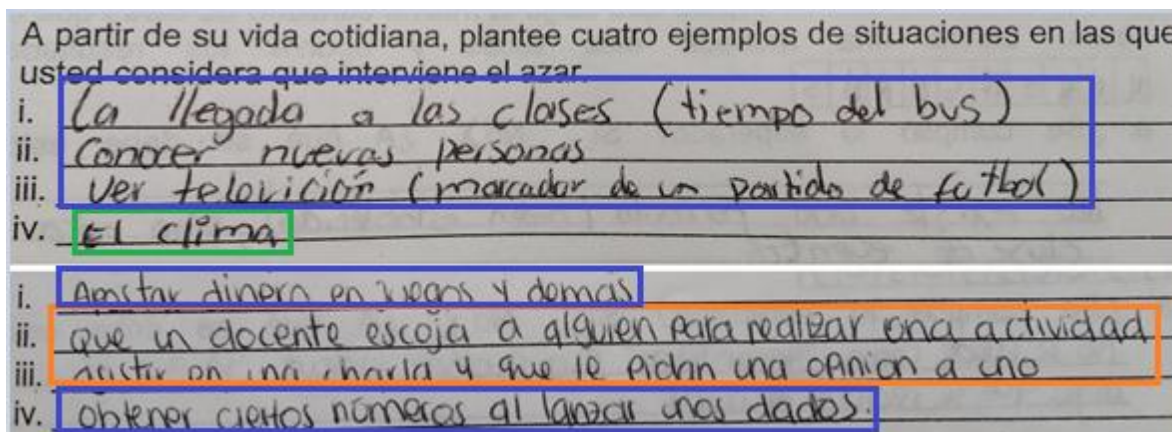 A partir de su vida cotidiana, plantee cuatro ejemplos de situaciones en las que
usted considera que interviene el azar.
i. La llegada a las clases (tiempo del bus)
ii. Conocer nuevas personas
iii. Ver televición (marcador de un partido de futbol)
iv. El clima
i. Apostar dinero en juegos y demás
ii. que un docente escoja a alguien para realizar una actividad
iii. asistir en una charla y que le pidan una opinion a uno
iv. Obtener ciertos números al lanzar unos dados.